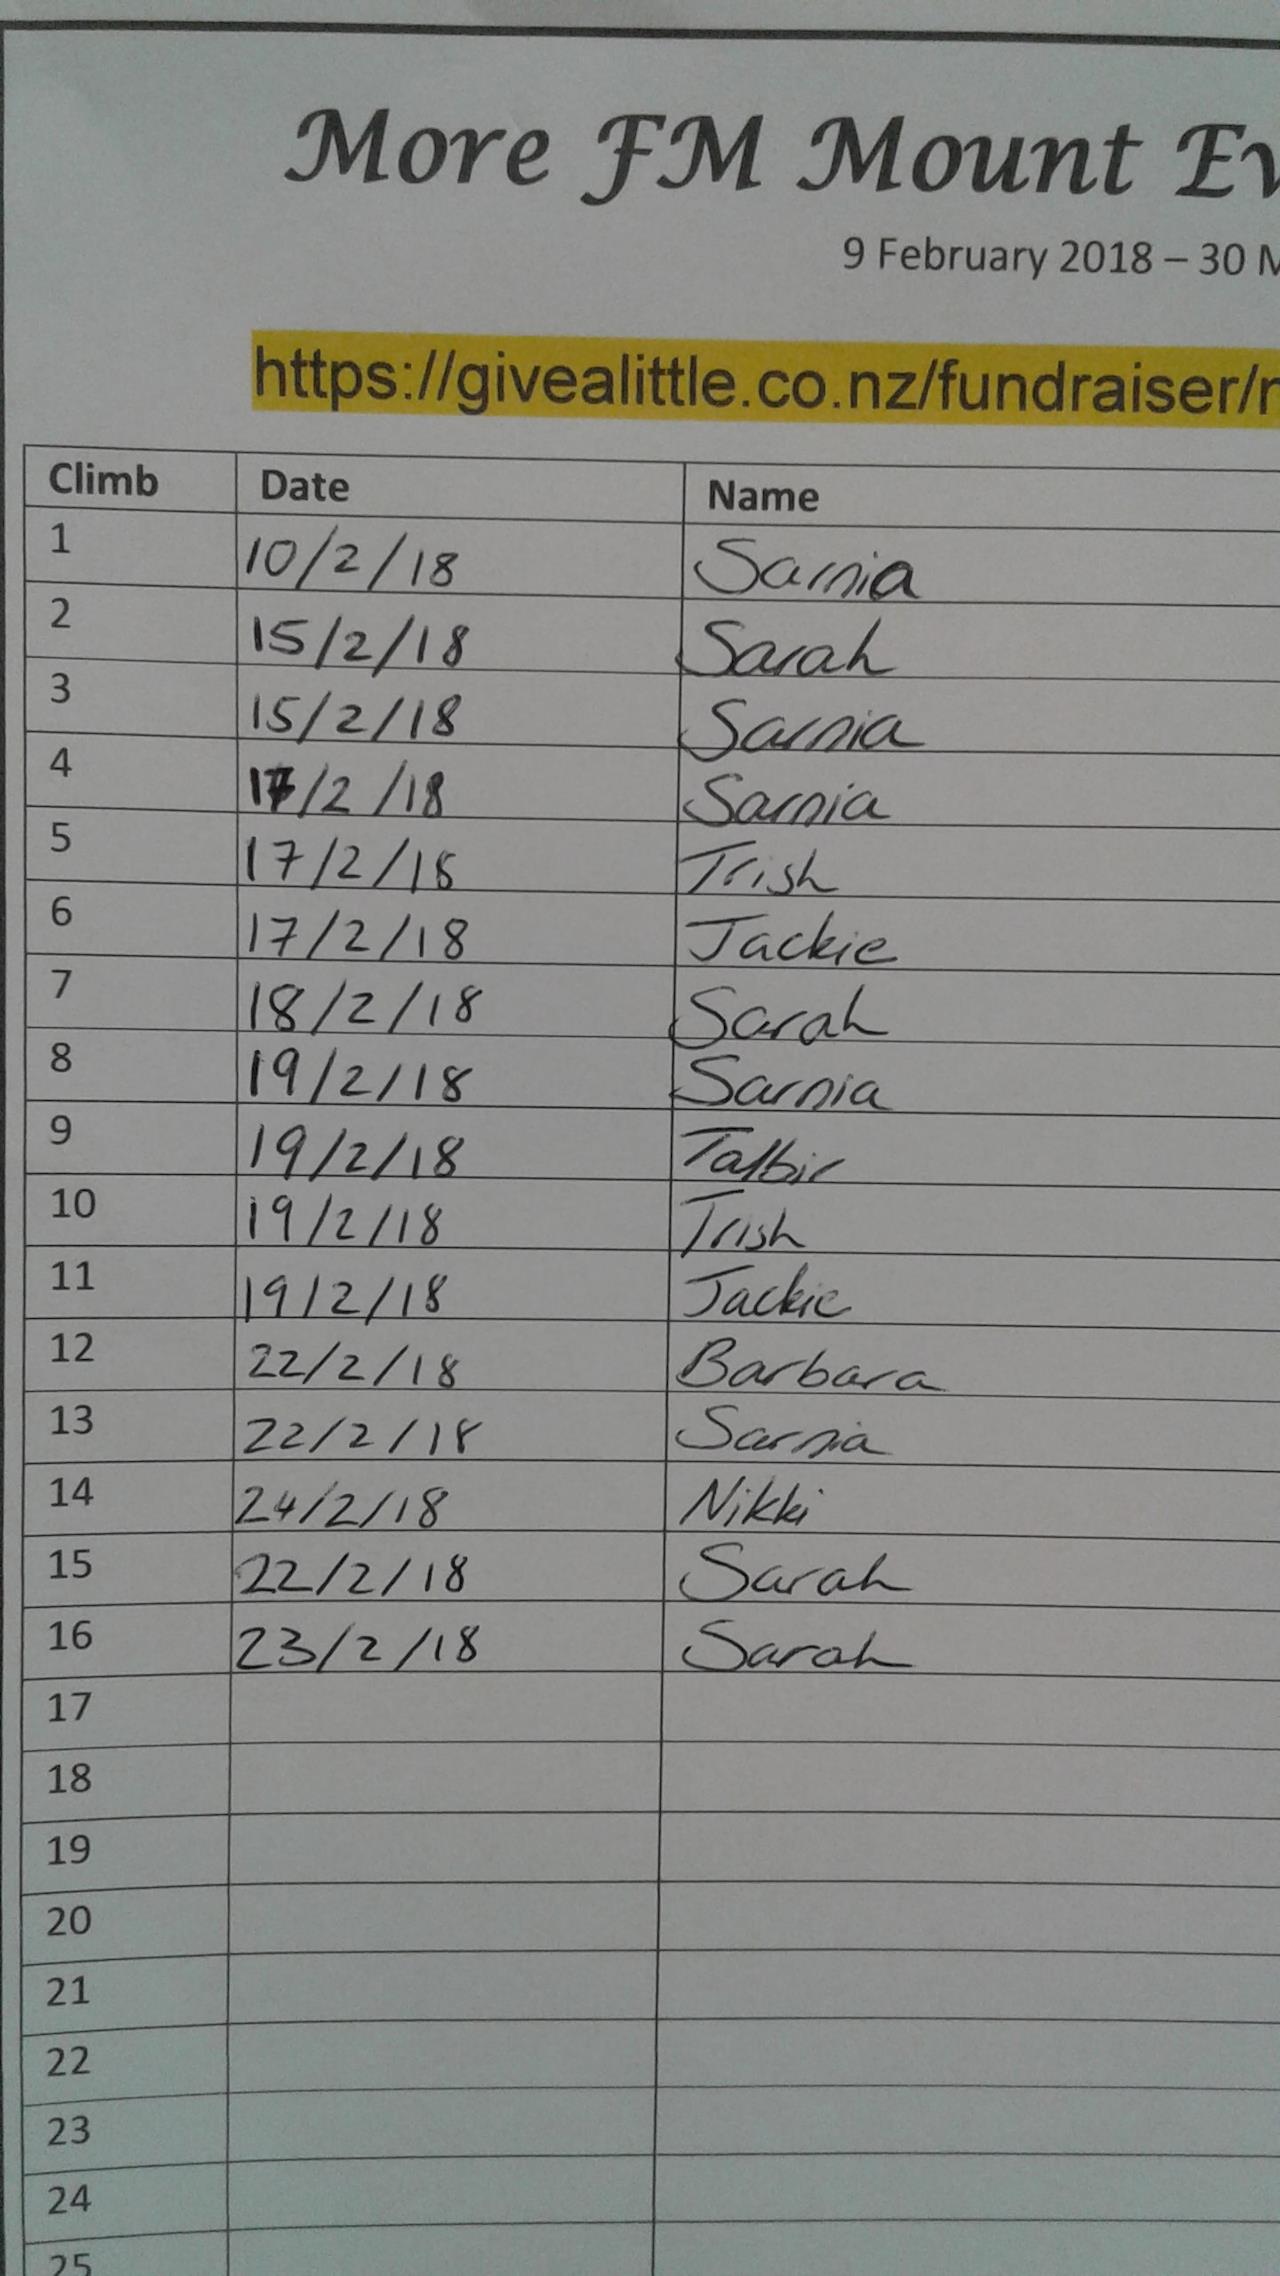 More FM Mount Ev
9 February 2018 – 30 M
https://givealittle.co.nz/fundraiser/r
Climb Date Name
1 10/2/18 Sarnia
2 15/2/18 Sarah
3 15/2/18 Sarnia
4 17/2/18 Sarnia
5 17/2/18 Trish
6 17/2/18 Jackie
7 18/2/18 Sarah
8 19/2/18 Sarnia
9 19/2/18 Talbir
10 19/2/18 Trish
11 19/2/18 Jackie
12 22/2/18 Barbara
13 22/2/18 Sarnia
14 24/2/18 Nikki
15 22/2/18 Sarah
16 23/2/18 Sarah
17
18
19
20
21
22
23
24
25